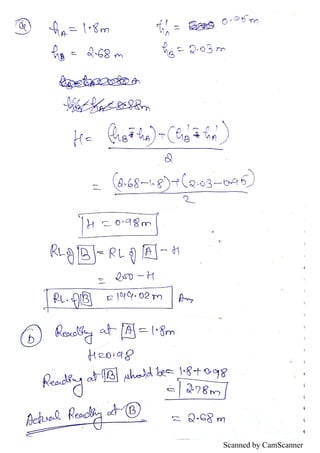 (a) hA = 1.8m h'A = 0.95m
hB = 2.68 m h'B = 2.03m
H = (hB - hA) + (h'B - h'A)
2
= (2.68-1.8)+(2.03-0.95)
2
H = 0.98m
RL of B = RL of A - H
= 200 - H
RL. of B = 199.02 m Ans
(b) Reading at A = 1.8m
H=0.98
Reading at B should be = 1.8+0.98
= 2.78m
Actual Reading at (B) = 2.68 m
Scanned by CamScanner